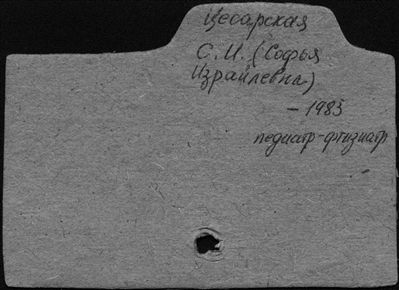 Цесарская
С.И. (Софья
Израйлевна)
- 1985
педиатр-фтизиатр